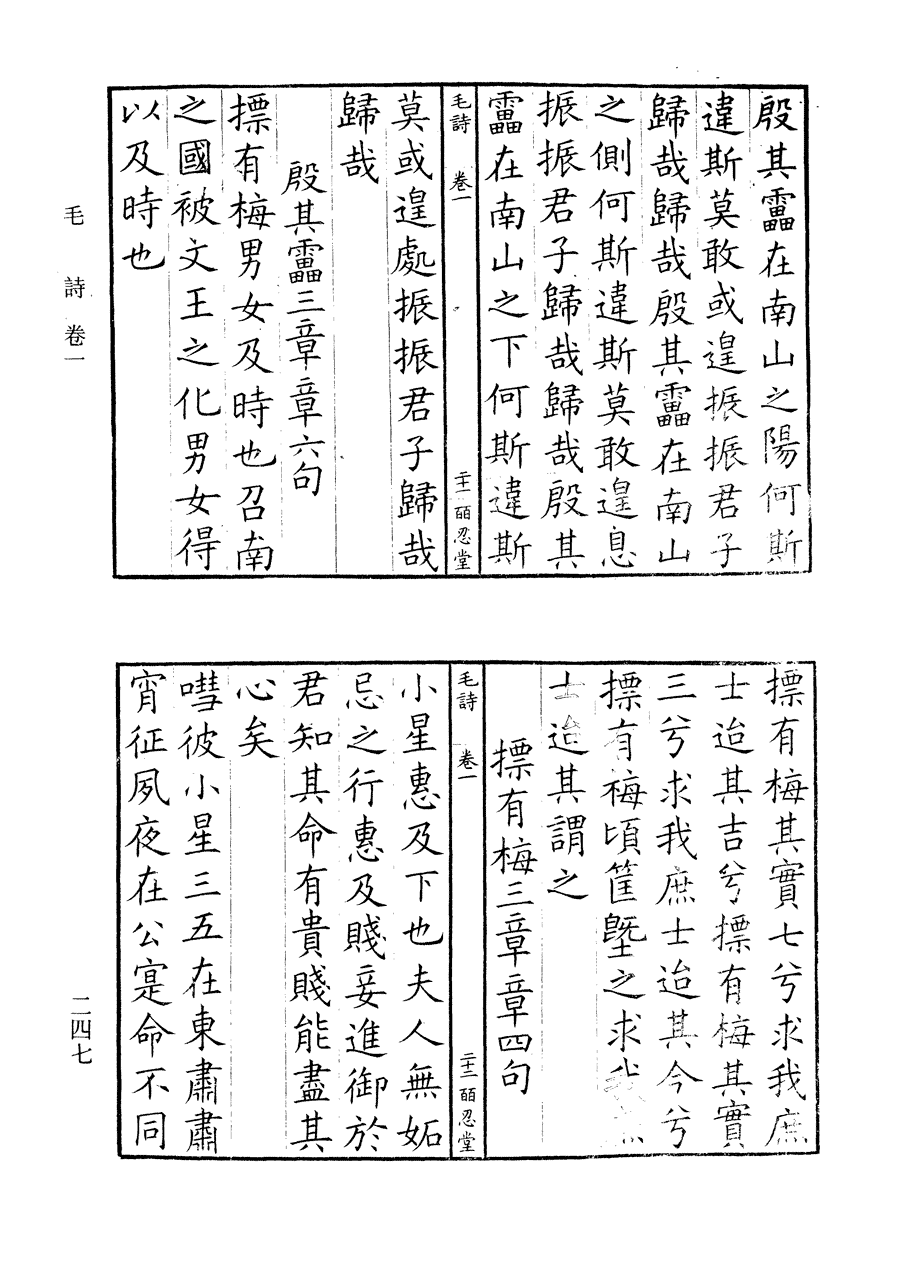 殷其靁在南山之陽何斯
違斯莫敢或遑振振君子
歸哉歸哉殷其靁在南山
之側何斯違斯莫敢遑息
振振君子歸哉歸哉殷其
靁在南山之下何斯違斯
毛詩 卷一 二十一 皕忍堂
莫或遑處振振君子歸哉
歸哉
殷其靁三章章六句
摽有梅男女及時也召南
之國被文王之化男女得
以及時也
毛詩卷一
摽有梅其實七兮求我庶
士迨其吉兮摽有梅其實
三兮求我庶士迨其今兮
摽有梅頃筐塈之求我
士迨其謂之
摽有梅三章章四句
毛詩 卷一 二十二 皕忍堂
小星惠及下也夫人無妬
忌之行惠及賤妾進御於
君知其命有貴賤能盡其
心矣
嘒彼小星三五在東肅肅
宵征夙夜在公寔命不同
二四七